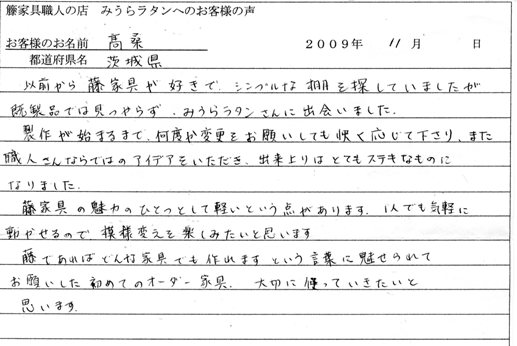 籐家具職人の店　みうらラタンへのお客様の声
お客様のお名前　高桑　2009年　11月　日
都道府県名　茨城県
以前から籐家具が好きで、シンプルな棚を探していましたが
既製品では見つからず、みうらラタンさんに出会いました。
製作が始まるまで、何度か変更をお願いしても快く応じて下さり、また
職人さんならではのアイデアをいただき、出来上りはとてもステキなものに
なりました。
籐家具の魅力のひとつとして軽いという点があります。1人でも気軽に
動かせるので、模様変えを楽しみたいと思います
籐であればどんな家具でも作れますという言葉に魅せられて
お願いした初めてのオーダー家具。大切に使っていきたいと
思います。